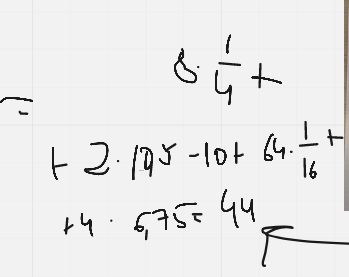 =
8 · 1/4 +
+ 2 · 10,5 - 10 + 64 · 1/16 +
+ 4 · 6,75 = 44